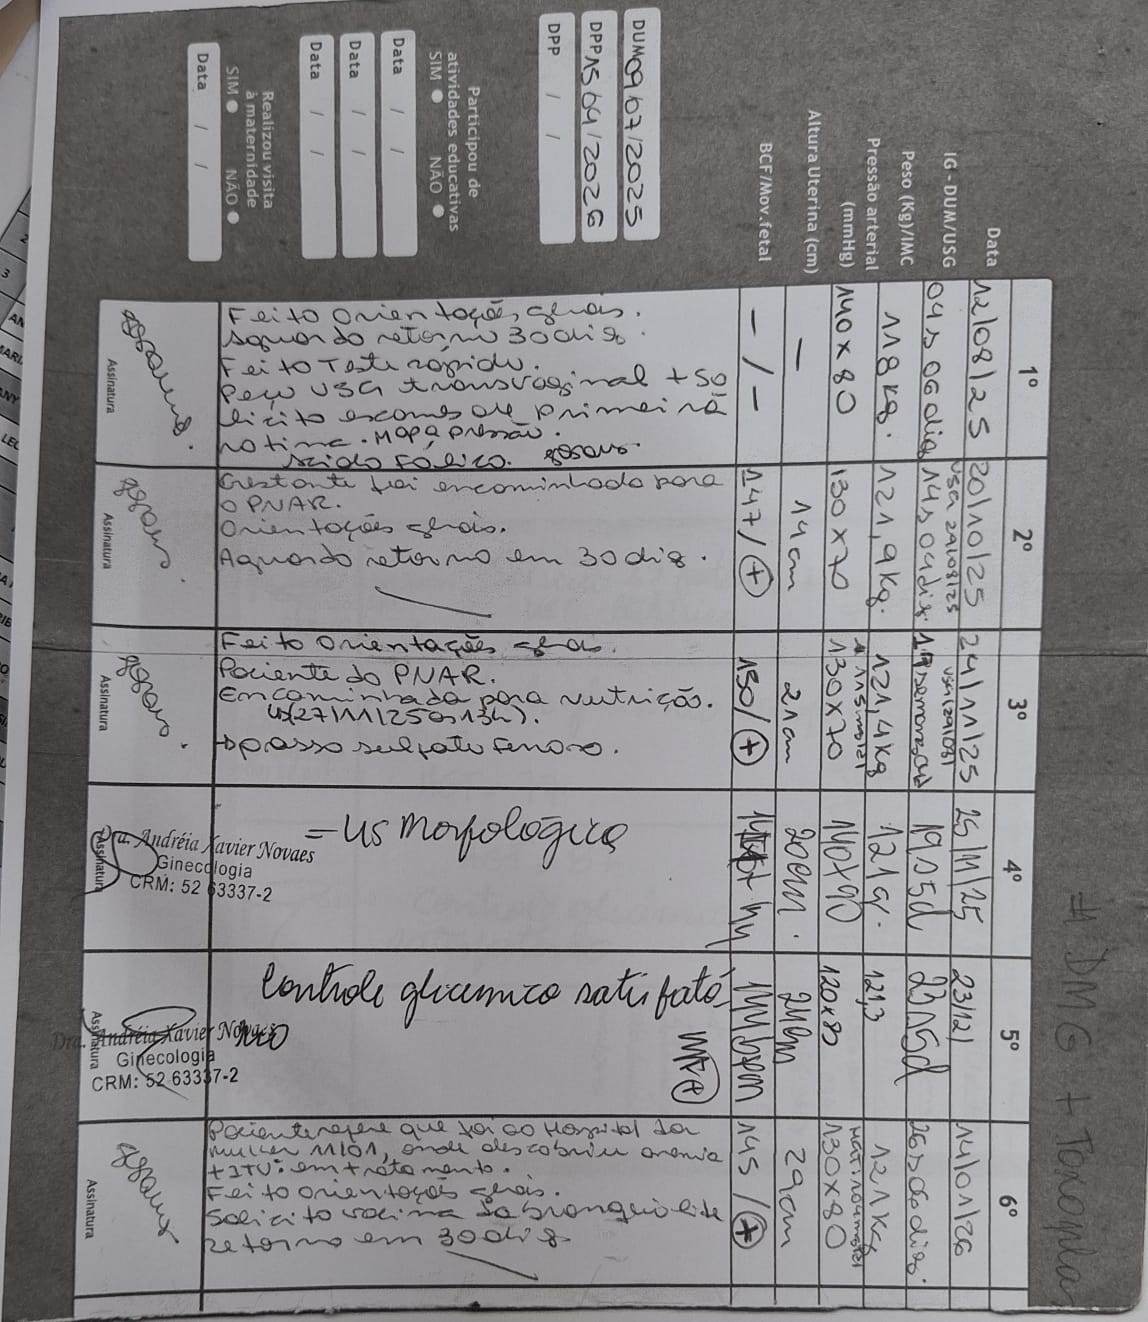 # DMG + Toxopla
1º 2º 3º 4º 5º 6º
Data 12/08/25 20/10/25 24/11/25 25/11/25 23/12/ 14/01/26
USG 29/08/25
IG - DUM/USG 04s 06 dias 14s 04 dias 19s5d 23s5d 26s
Peso (Kg)/IMC 118 kg. 121,9 kg. 121,4 kg 121 121,3 121 kg
Pressão arterial
(mmHg) 140 x 80 130 x 70 130 x 70 140x90 120x80 130 x 80
Altura Uterina (cm) - 14 cm 21 cm 20cm. 24cm 29 cm
BCF/Mov.fetal -/- 147/+ 150/+ 144bpm 145/+
DUM 09/07/2025
DPP 15/04/2026
DPP / /
Participou de
atividades educativas
SIM NÃO
Data / /
Data / /
Data / /
Realizou visita
à maternidade
SIM NÃO
Data / /
Feito orientações gerais.
Aguardo retorno 30 dias.
Feito Teste rapido.
Peço USG transvaginal + so
licito exames de primeira
rotina. Mapa pressão.
acido fólico.
Assinatura
Gestante foi encaminhada para
o PNAR.
Orientações gerais.
Aguardo retorno em 30 dias.
Assinatura
Feito orientações gerais.
Paciente do PNAR.
Encaminhada para nutrição.
(27/11/25 às 13h).
passo sulfato ferroso.
Assinatura
= US Morfológico
Dra. Andréia Xavier Novaes
Ginecologia
CRM: 52 63337-2
Assinatura
Controle glicemico satisfató
rio
MF+
Dra. Andréia Xavier Novaes
Ginecologia
CRM: 52 63337-2
Assinatura
Paciente refere que foi ao Hospital da
mulher 11/01, onde descobriu anemia
+ ITU: em tratamento.
Feito orientações gerais.
Solicito vacina da bronquiolite
retorno em 30 dias
Assinatura